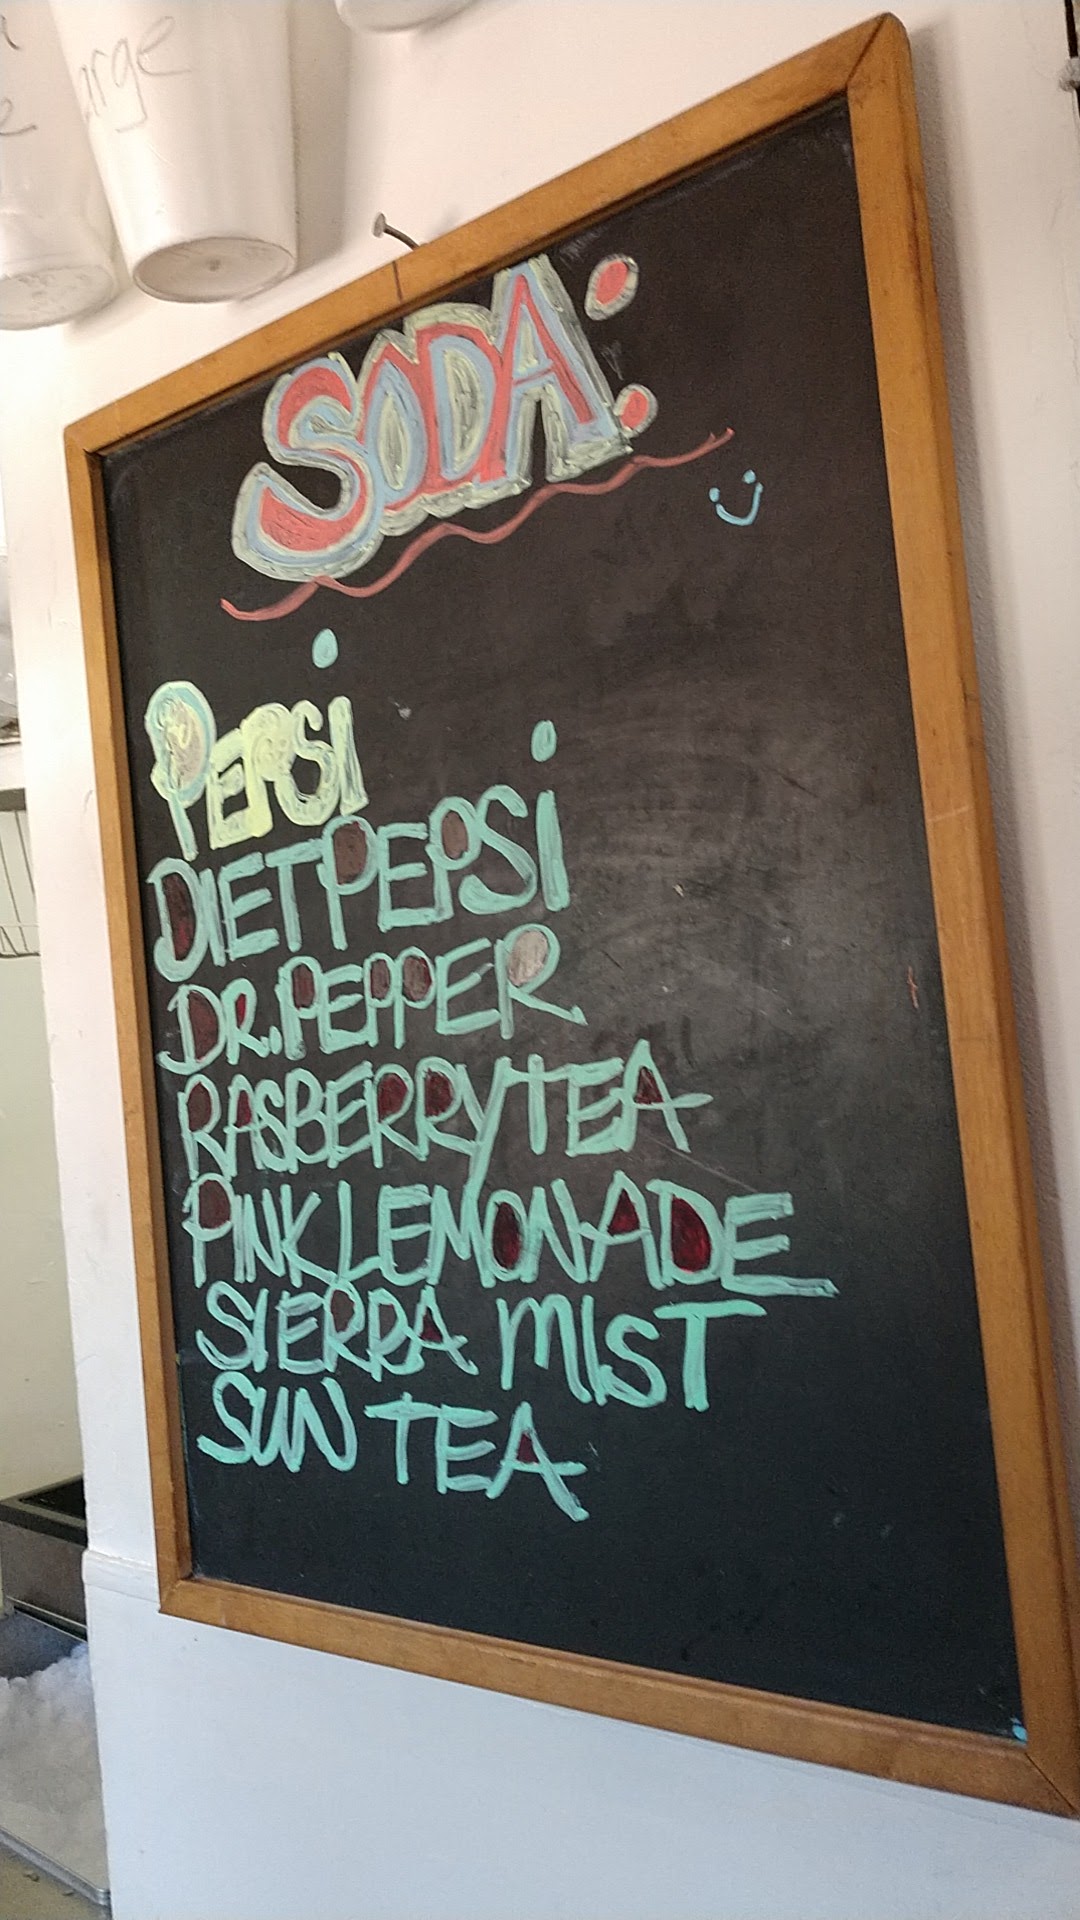 arge
SODA:
PEPSI
DIET PEPSI
DR. PEPPER
RASBERRY TEA
PINK LEMONADE
SIERRA MIST
SUN TEA